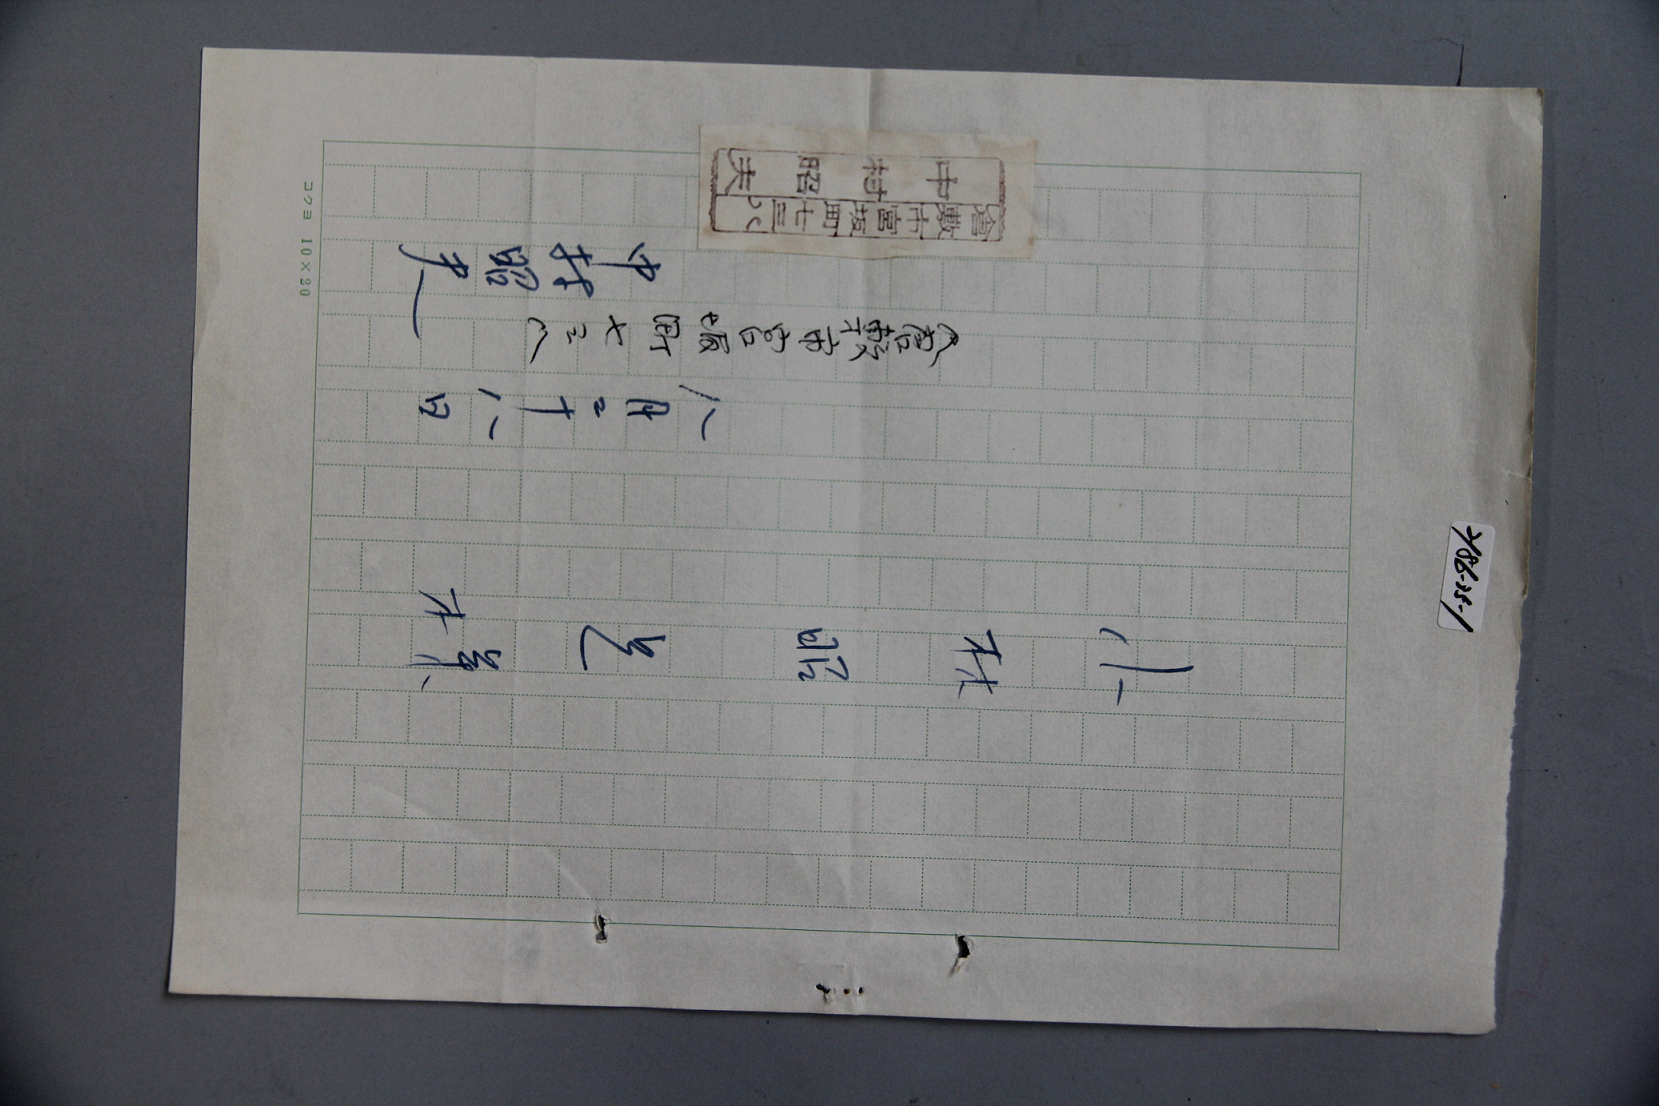 小林昭 様
八月二十八日
倉敷市宮坂町七三八
中村昭夫
倉敷市宮坂町七三八
中村昭夫
コクヨ 10×20